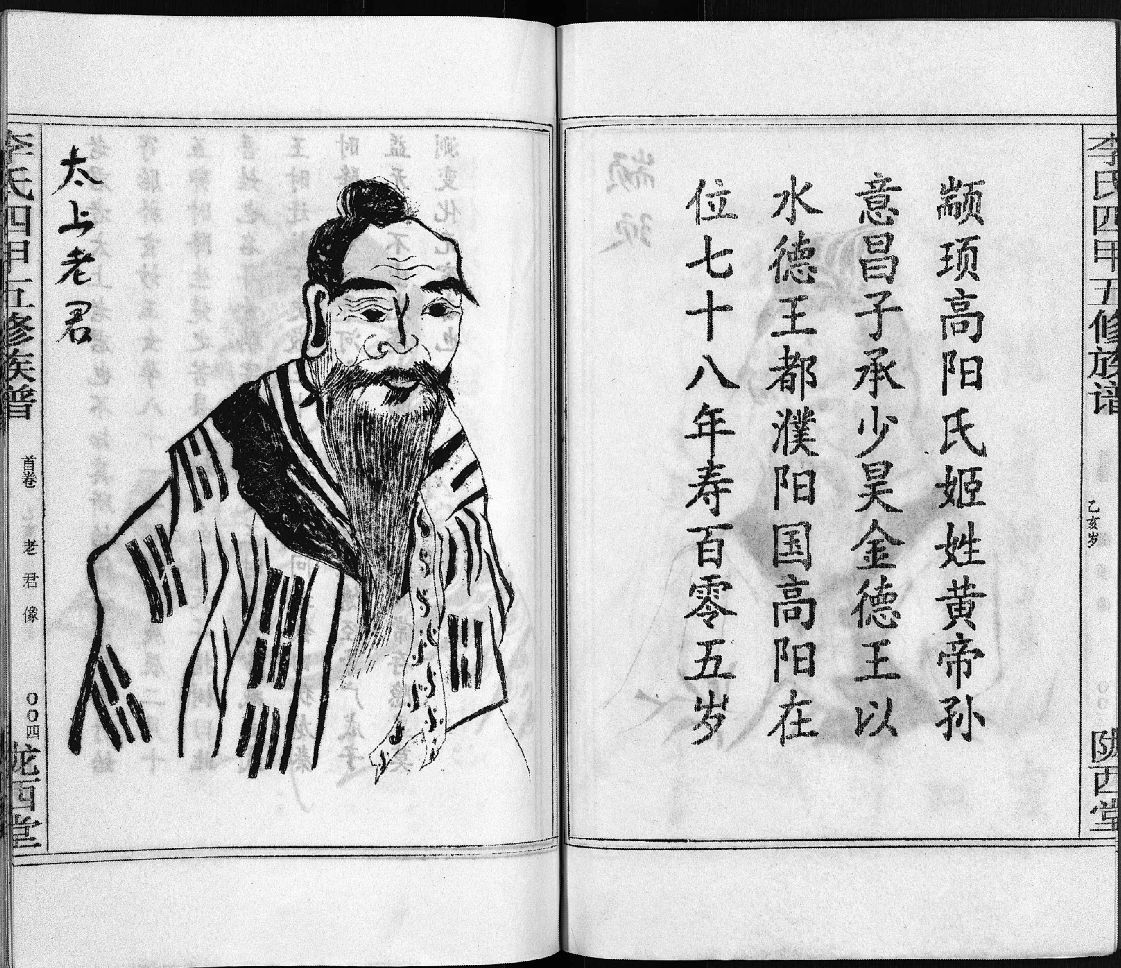 李氏四甲五修族谱
乙亥岁
陇西堂
颛顼高阳氏姬姓黄帝孙
意昌子承少昊金德王以
水德王都濮阳国高阳在
位七十八年寿百零五岁
太上老君
李氏四甲五修族谱
首卷
老君像
〇〇四
陇西堂